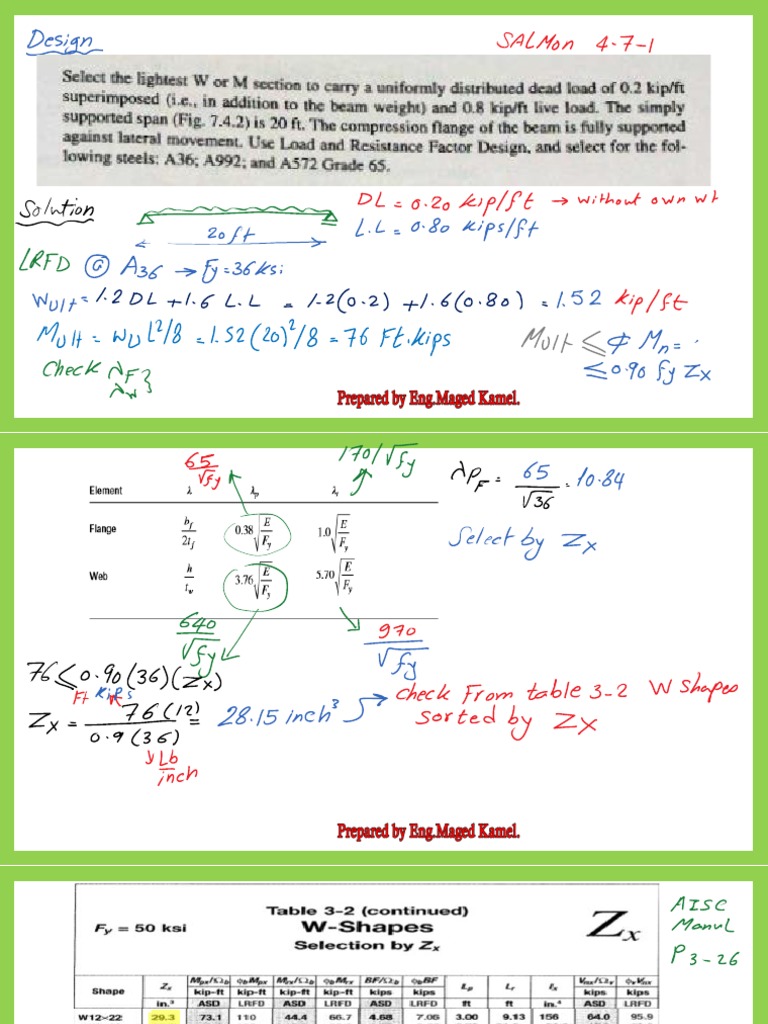 Design
SALMon 4-7-1
Select the lightest W or M section to carry a uniformly distributed dead load of 0.2 kip/ft
superimposed (i.e., in addition to the beam weight) and 0.8 kip/ft live load. The simply
supported span (Fig. 7.4.2) is 20 ft. The compression flange of the beam is fully supported
against lateral movement. Use Load and Resistance Factor Design, and select for the fol-
lowing steels: A36; A992; and A572 Grade 65.
Solution
20 ft
DL = 0.20 kip/ft → without own wt
L.L = 0.80 kips/ft
LRFD @ A36 → Fy = 36 ksi
Wult = 1.2 DL + 1.6 L.L = 1.2(0.2) + 1.6(0.80) = 1.52 kip/ft
Mult = WU L²/8 = 1.52(20)²/8 = 76 Ft.kips
Mult ≤ φ Mn =
≤ 0.90 fy Zx
Check λF }
λw
Prepared by Eng.Maged Kamel.
65/√fy
170/√fy
λpF = 65/√36 = 10.84
Element λ λp λr
Flange bf/2tf 0.38√E/Fy 1.0√E/Fy
Select by Zx
Web h/tw 3.76√E/Fy 5.70√E/Fy
640/√fy
970/√fy
76 ≤ 0.90(36)(Zx)
Ft kips
Zx = 76(12)/0.9(36) = 28.15 inch³
check From table 3-2 W shapes
sorted by Zx
Lb
inch
Prepared by Eng.Maged Kamel.
Table 3-2 (continued)
Fy = 50 ksi W-Shapes Zx
Selection by Zx
AISC
Manul
P 3-26
Shape Zx Mpx/Ωb φbMpx Mrx/Ωb φbMrx BF/Ωb φbBF Lp Lr Ix Vnx/Ωv φvVnx
kip-ft kip-ft kip-ft kip-ft kips kips kips kips
in.³ ASD LRFD ASD LRFD ASD LRFD ft ft in.⁴ ASD LRFD
W12×22 29.3 73.1 110 44.4 66.7 4.68 7.06 3.00 9.13 156 64.0 95.9